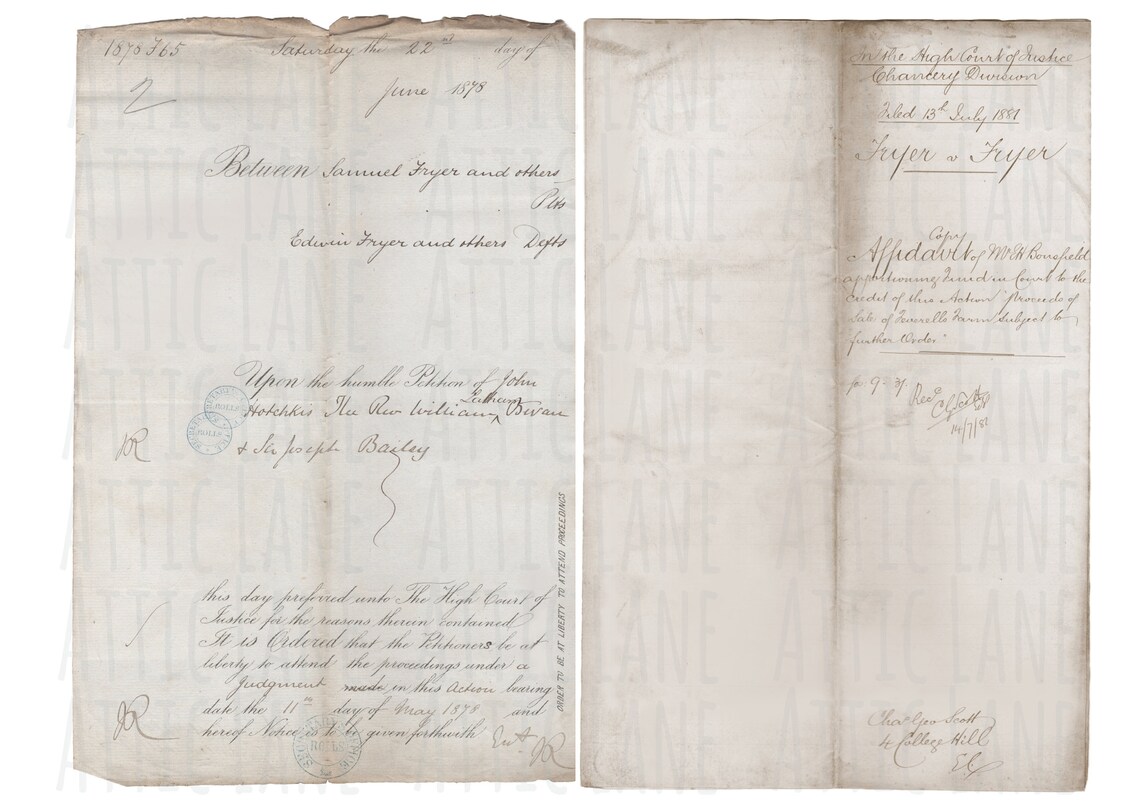 1878 F 65 Saturday the 22nd day of
2
June 1878
Between Samuel Fryer and others
Plts
Edwin Fryer and others Defts
Upon the humble Petition of John
Hotchkis The Rev William Latham Bevan
& Sir Joseph Bailey
JR
this day preferred unto The High Court of
Justice for the reasons therein contained
It is Ordered that the Petitioners be at
liberty to attend the proceedings under a
Judgment made in this Action bearing
date the 11th day of May 1878 and
hereof Notice is to be given forthwith
JR
JR
ORDER TO BE AT LIBERTY TO ATTEND PROCEEDINGS
SECRETARY OF THE ROLLS
In the High Court of Justice
Chancery Division
Filed 13th July 1881
Fryer v Fryer
Copy
Affidavit of Mr H Bousfield
apportioning Fund in Court to the
credit of this Action "Proceeds of
Sale of Farm subject to
further Order"
fos 9 - 3/.
Recd
C G Scott
14/7/81
Chas Geo Scott
4 College Hill
E.C.
ATTIC LANE